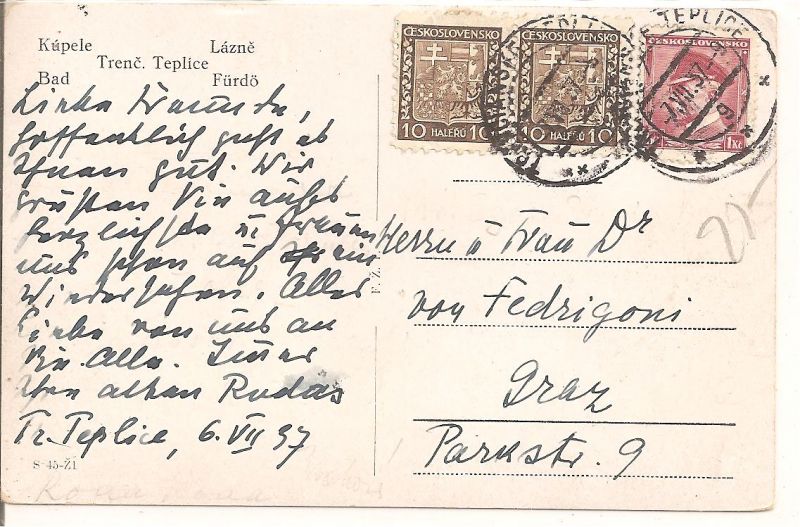 Kúpele Lázně
Trenč. Teplice
Bad Fürdö
Liebe Freunde,
hoffentlich geht es
Ihnen gut. Wir
grüßen Sie aufs
herzlichste u. freuen
uns schon auf ein
Wiedersehen. Alles
Liebe von uns an
Sie Alle. Immer
Ihre alten Rudas
Tr. Teplice, 6. VII 37
S-45-Ž1
F. Ž.
ČESKOSLOVENSKO
10 HALÉŘŮ 10
ČESKOSLOVENSKO
10 HALÉŘŮ 10
TEPLICE
ČESKOSLOVENSKO
7.VII.37
1Kč
Herrn u Frau Dr
von Fedrigoni
Graz
Parkstr. 9